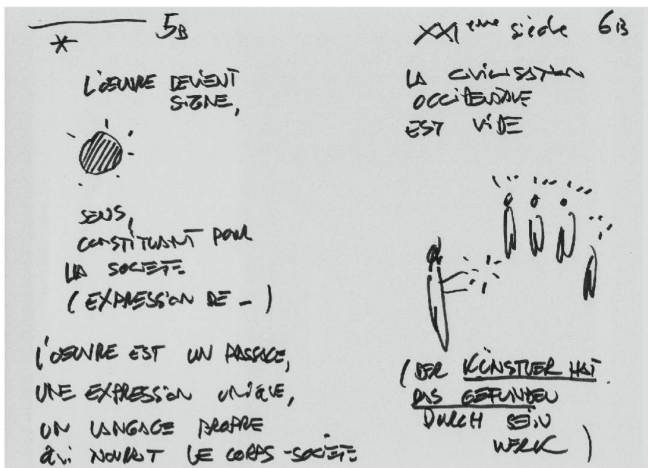 * 5B
L'OEUVRE DEVIENT
SIGNE,
SENS,
CONSTITUANT POUR
LA SOCIETE
(EXPRESSION DE - )
L'OEUVRE EST UN PASSAGE,
UNE EXPRESSION UNIQUE,
UN LANGAGE PROPRE
QUI NOURRIT LE CORPS-SOCIETE
XXIème siècle 6B
LA CIVILISATION
OCCIDENTALE
EST VIDE
(DER KÜNSTLER HAT
DAS GEFUNDEN
DURCH SEIN
WERK)